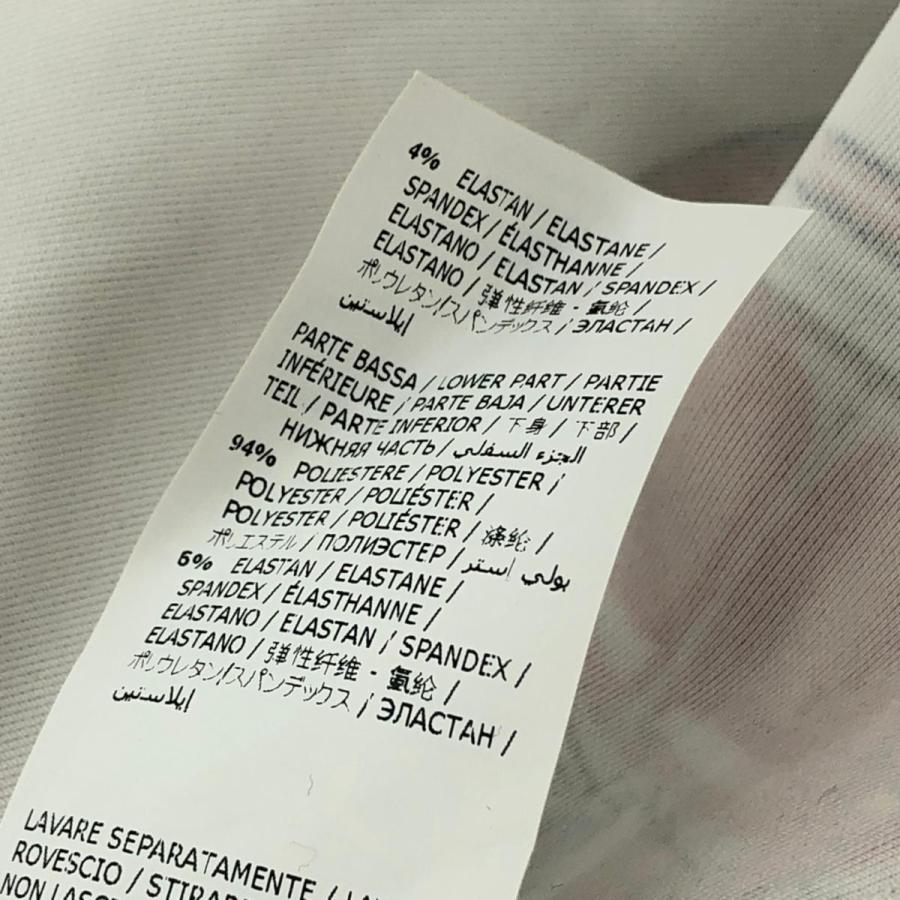 4% ELASTAN / ELASTANE /
SPANDEX / ÉLASTHANNE /
ELASTANO / ELASTAN / SPANDEX /
ELASTANO / 弹性纤维 - 氨纶 /
ポリウレタン/スパンデックス / ЭЛАСТАН /
إيلاستين
PARTE BASSA / LOWER PART / PARTIE
INFÉRIEURE / PARTE BAJA / UNTERER
TEIL / PARTE INFERIOR / 下身 / 下部 /
НИЖНЯЯ ЧАСТЬ / الجزء السفلي
94% POLIESTERE / POLYESTER /
POLYESTER / POLIÉSTER /
POLYESTER / POLIÉSTER / 涤纶 /
ポリエステル / ПОЛИЭСТЕР / بولي إستر
6% ELASTAN / ELASTANE /
SPANDEX / ÉLASTHANNE /
ELASTANO / ELASTAN / SPANDEX /
ELASTANO / 弹性纤维 - 氨纶 /
ポリウレタン/スパンデックス / ЭЛАСТАН /
إيلاستين
LAVARE SEPARATAMENTE /
ROVESCIO /
NON